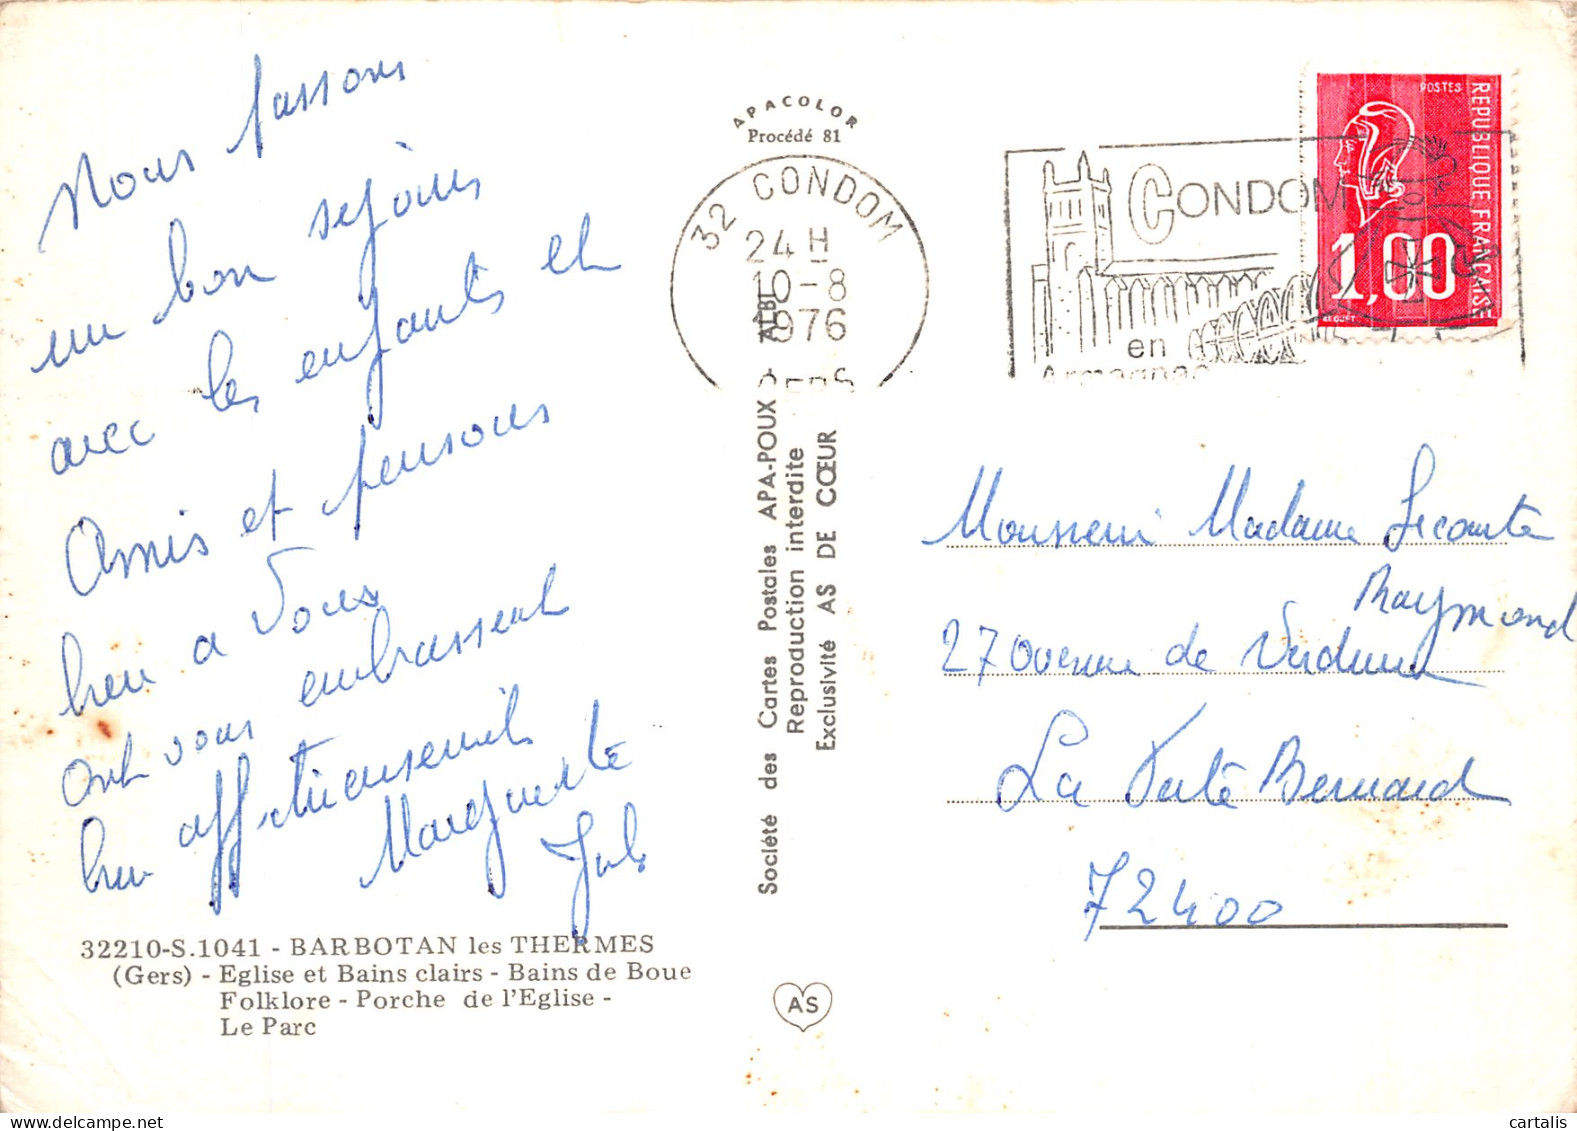 Nous passons
un bon séjours
avec les enfants et
Amis et pensons
bien a Vous
ont vous embrassent
bien affectueusement
Marguerite
Jules
32210-S.1041 - BARBOTAN les THERMES
(Gers) - Eglise et Bains clairs - Bains de Boue
Folklore - Porche de l'Eglise -
Le Parc
APACOLOR
Procédé 81
32 CONDOM
24 H
10-8
1976
GERS
Société des Cartes Postales APA-POUX - ALBI
Reproduction interdite
Exclusivité AS DE CŒUR
AS
CONDOM
en
Armagnac
POSTES
REPUBLIQUE FRANÇAISE
1,00
BEQUET
Monsieur Madame Lecomte
Raymond
27 avenue de Verdun
La Ferté Bernard
72400
cartalis